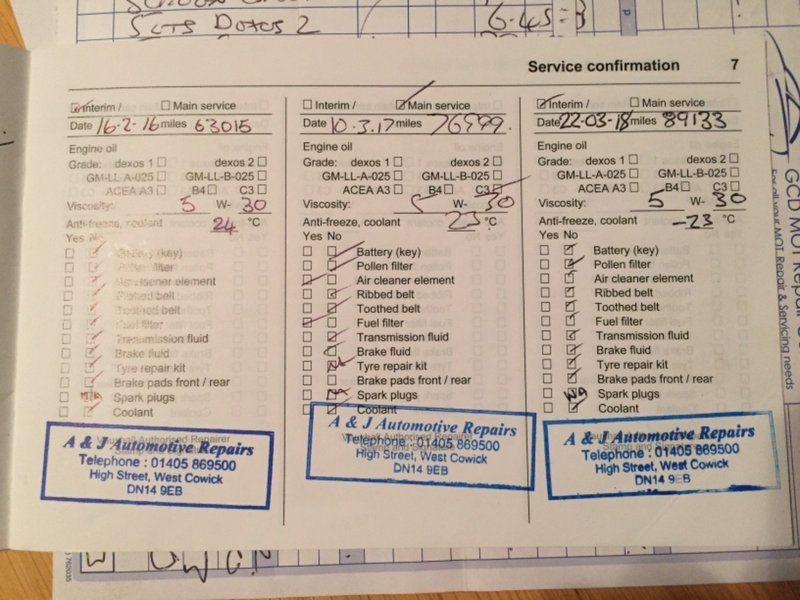 Sets Dexos 2
6.45
Service confirmation 7
Interim / Main service
Date 16-2-16 miles 63015
Engine oil
Grade: dexos 1 dexos 2
GM-LL-A-025 GM-LL-B-025
ACEA A3 B4 C3
Viscosity: 5 W- 30
Anti-freeze, coolant 24 °C
Yes No
Battery (key)
Pollen filter
Air cleaner element
Ribbed belt
Toothed belt
Fuel filter
Transmission fluid
Brake fluid
Tyre repair kit
Brake pads front / rear
N/A Spark plugs
Coolant
Vauxhall Authorised Repairer
A & J Automotive Repairs
Telephone : 01405 869500
High Street, West Cowick
DN14 9EB
Interim / Main service
Date 10.3.17 miles 76999.
Engine oil
Grade: dexos 1 dexos 2
GM-LL-A-025 GM-LL-B-025
ACEA A3 B4 C3
Viscosity: 5 W- 30
Anti-freeze, coolant 23 °C
Yes No
Battery (key)
Pollen filter
Air cleaner element
Ribbed belt
Toothed belt
Fuel filter
Transmission fluid
Brake fluid
Tyre repair kit
Brake pads front / rear
Spark plugs
Coolant
A & J Automotive Repairs
Telephone : 01405 869500
High Street, West Cowick
DN14 9EB
Interim / Main service
Date 22-03-18 miles 89133
Engine oil
Grade: dexos 1 dexos 2
GM-LL-A-025 GM-LL-B-025
ACEA A3 B4 C3
Viscosity: 5 W- 30
Anti-freeze, coolant -23 °C
Yes No
Battery (key)
Pollen filter
Air cleaner element
Ribbed belt
Toothed belt
Fuel filter
Transmission fluid
Brake fluid
Tyre repair kit
Brake pads front / rear
N/A Spark plugs
Coolant
A & J Automotive Repairs
Telephone : 01405 869500
High Street, West Cowick
DN14 9EB
GCD MOT Repair
For all your MOT, Repair & Servicing needs